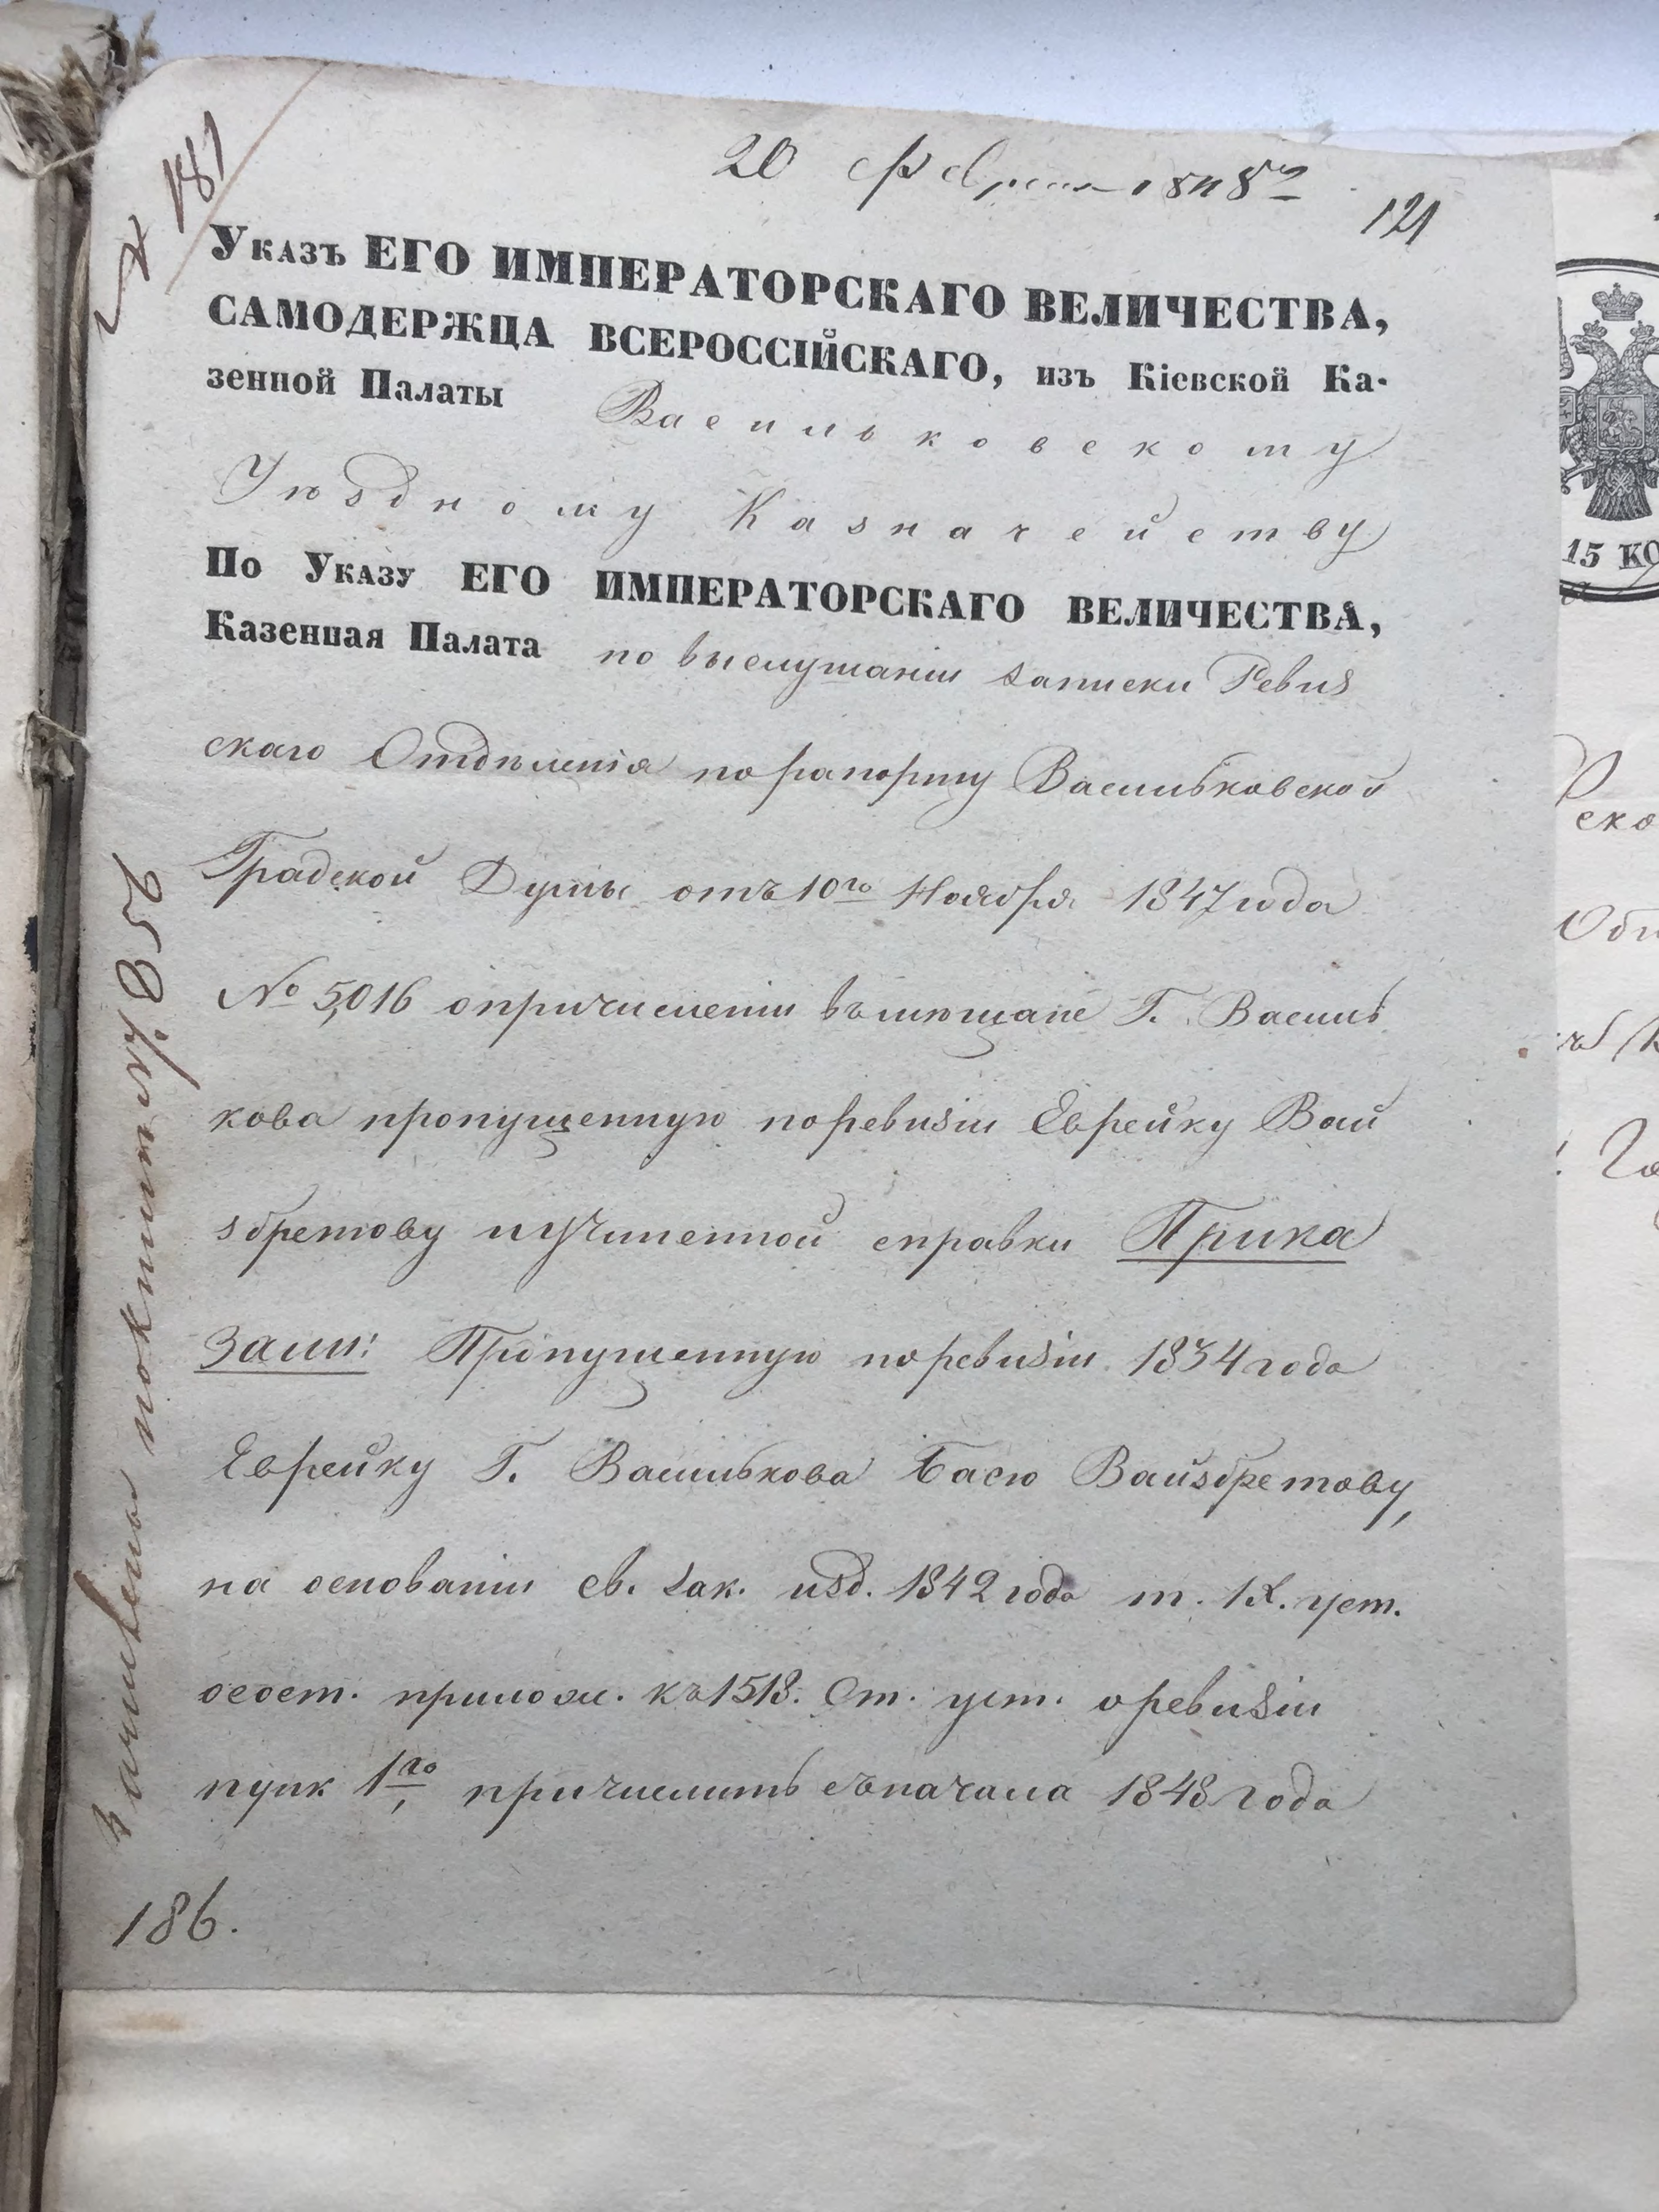 20 Февраля 1848 г
121
№ 181
Указъ ЕГО ИМПЕРАТОРСКАГО ВЕЛИЧЕСТВА,
САМОДЕРЖЦА ВСЕРОССІЙСКАГО, изъ Кіевской Ка-
зенной Палаты Васильковскому
Уѣздному Казначейству
По Указу ЕГО ИМПЕРАТОРСКАГО ВЕЛИЧЕСТВА,
Казенная Палата по выслушаніи записки Ревиз
скаго Отдѣленія по рапорту Васильковской
Градской Думы отъ 10го Ноября 1847 года
№ 5,016 о причисленіи въ мѣщане Г. Василь
кова пропущенную по ревизіи Еврейку Вай
збретову и учиненной справки Прика
зали: Пропущенную по ревизіи 1834 года
Еврейку Г. Василькова Басю Вайзбретову,
на основаніи св. зак. изд. 1842 года т. IX. уст.
о сост. прилож. къ 1518. Ст. уст. о ревизіи
пунк 1го, причислить съ начала 1848 года
186.
15 КО